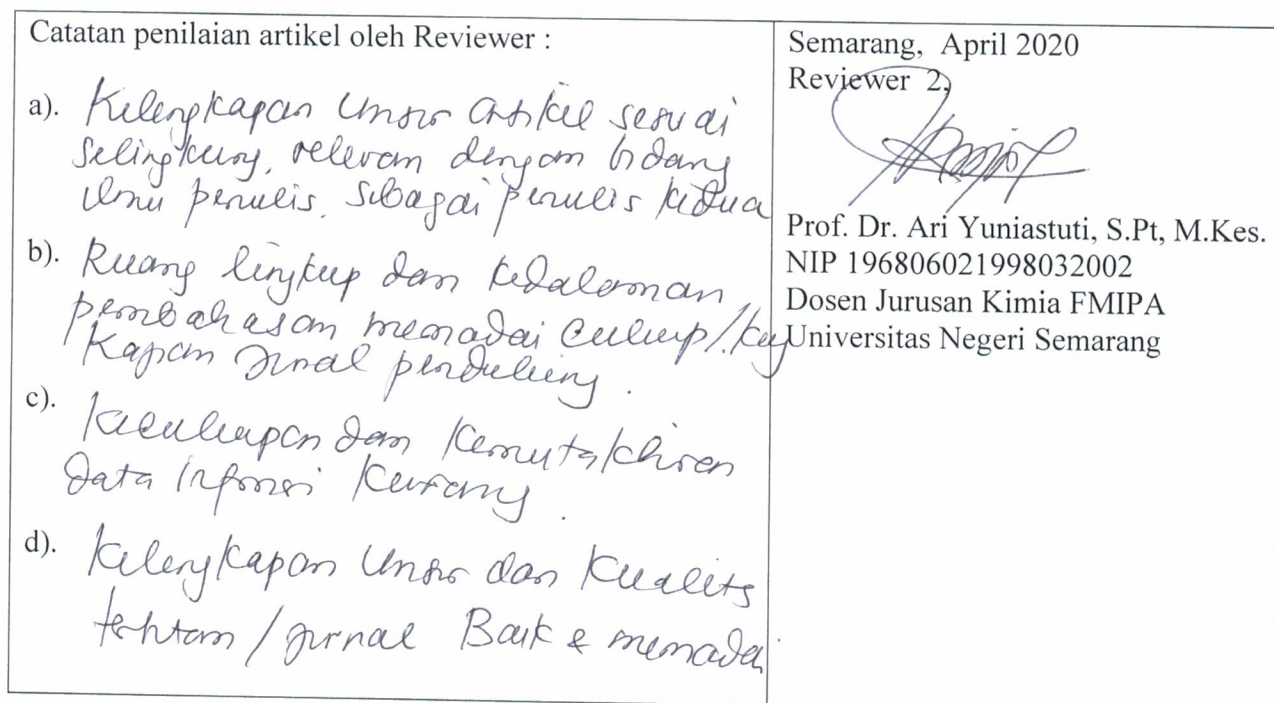 Catatan penilaian artikel oleh Reviewer :
a). Kelengkapan Unsur artikel sesuai
selingkung, relevan dengan bidang
ilmu penulis. Sebagai penulis kedua
b). Ruang lingkup dan kedalaman
pembahasan memadai cukup/.
jurnal pendukung.
c). Kecukupan dan Kemutakhiran
data informasi Kurang.
d). Kelengkapan Unsur dan Kualitas
/ jurnal Baik & memadai
Semarang, April 2020
Reviewer 2,
Prof. Dr. Ari Yuniastuti, S.Pt, M.Kes.
NIP 196806021998032002
Dosen Jurusan Kimia FMIPA
Universitas Negeri Semarang